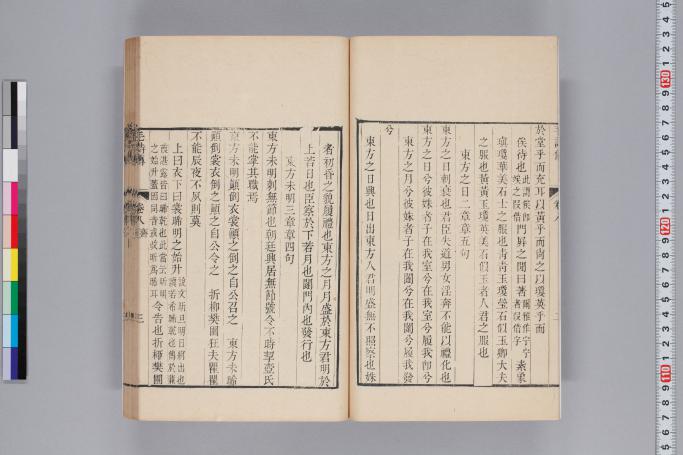 於堂乎而充耳以黃乎而尙之以瓊英乎而
俟待也
門屏之閒曰著
素象
瑱瓊華美石士之服也靑靑玉瓊瑩石似玉卿大夫
之服也黃黃玉瓊英美石似玉者人君之服也
東方之日二章章五句
東方之日刺衰也君臣失道男女淫奔不能以禮化也
東方之日兮彼姝者子在我室兮在我室兮履我卽兮
東方之月兮彼姝者子在我闥兮在我闥兮履我發
兮
東方之日興也日出東方人君明盛無不照察也姝
者初昏之貌履禮也東方之月月盛於東方君明於
上若日也臣察於下若月也闥門內也發行也
東方未明三章章四句
東方未明刺無節也朝廷興居無節號令不時挈壺氏
不能掌其職焉
東方未明顚倒衣裳顚之倒之自公召之 東方未晞
顚倒裳衣倒之顚之自公令之 折柳樊圃狂夫瞿瞿
不能辰夜不夙則莫
上曰衣下曰裳晞明之始升
令告也折柳樊圃
毛詩傳
卷八
三